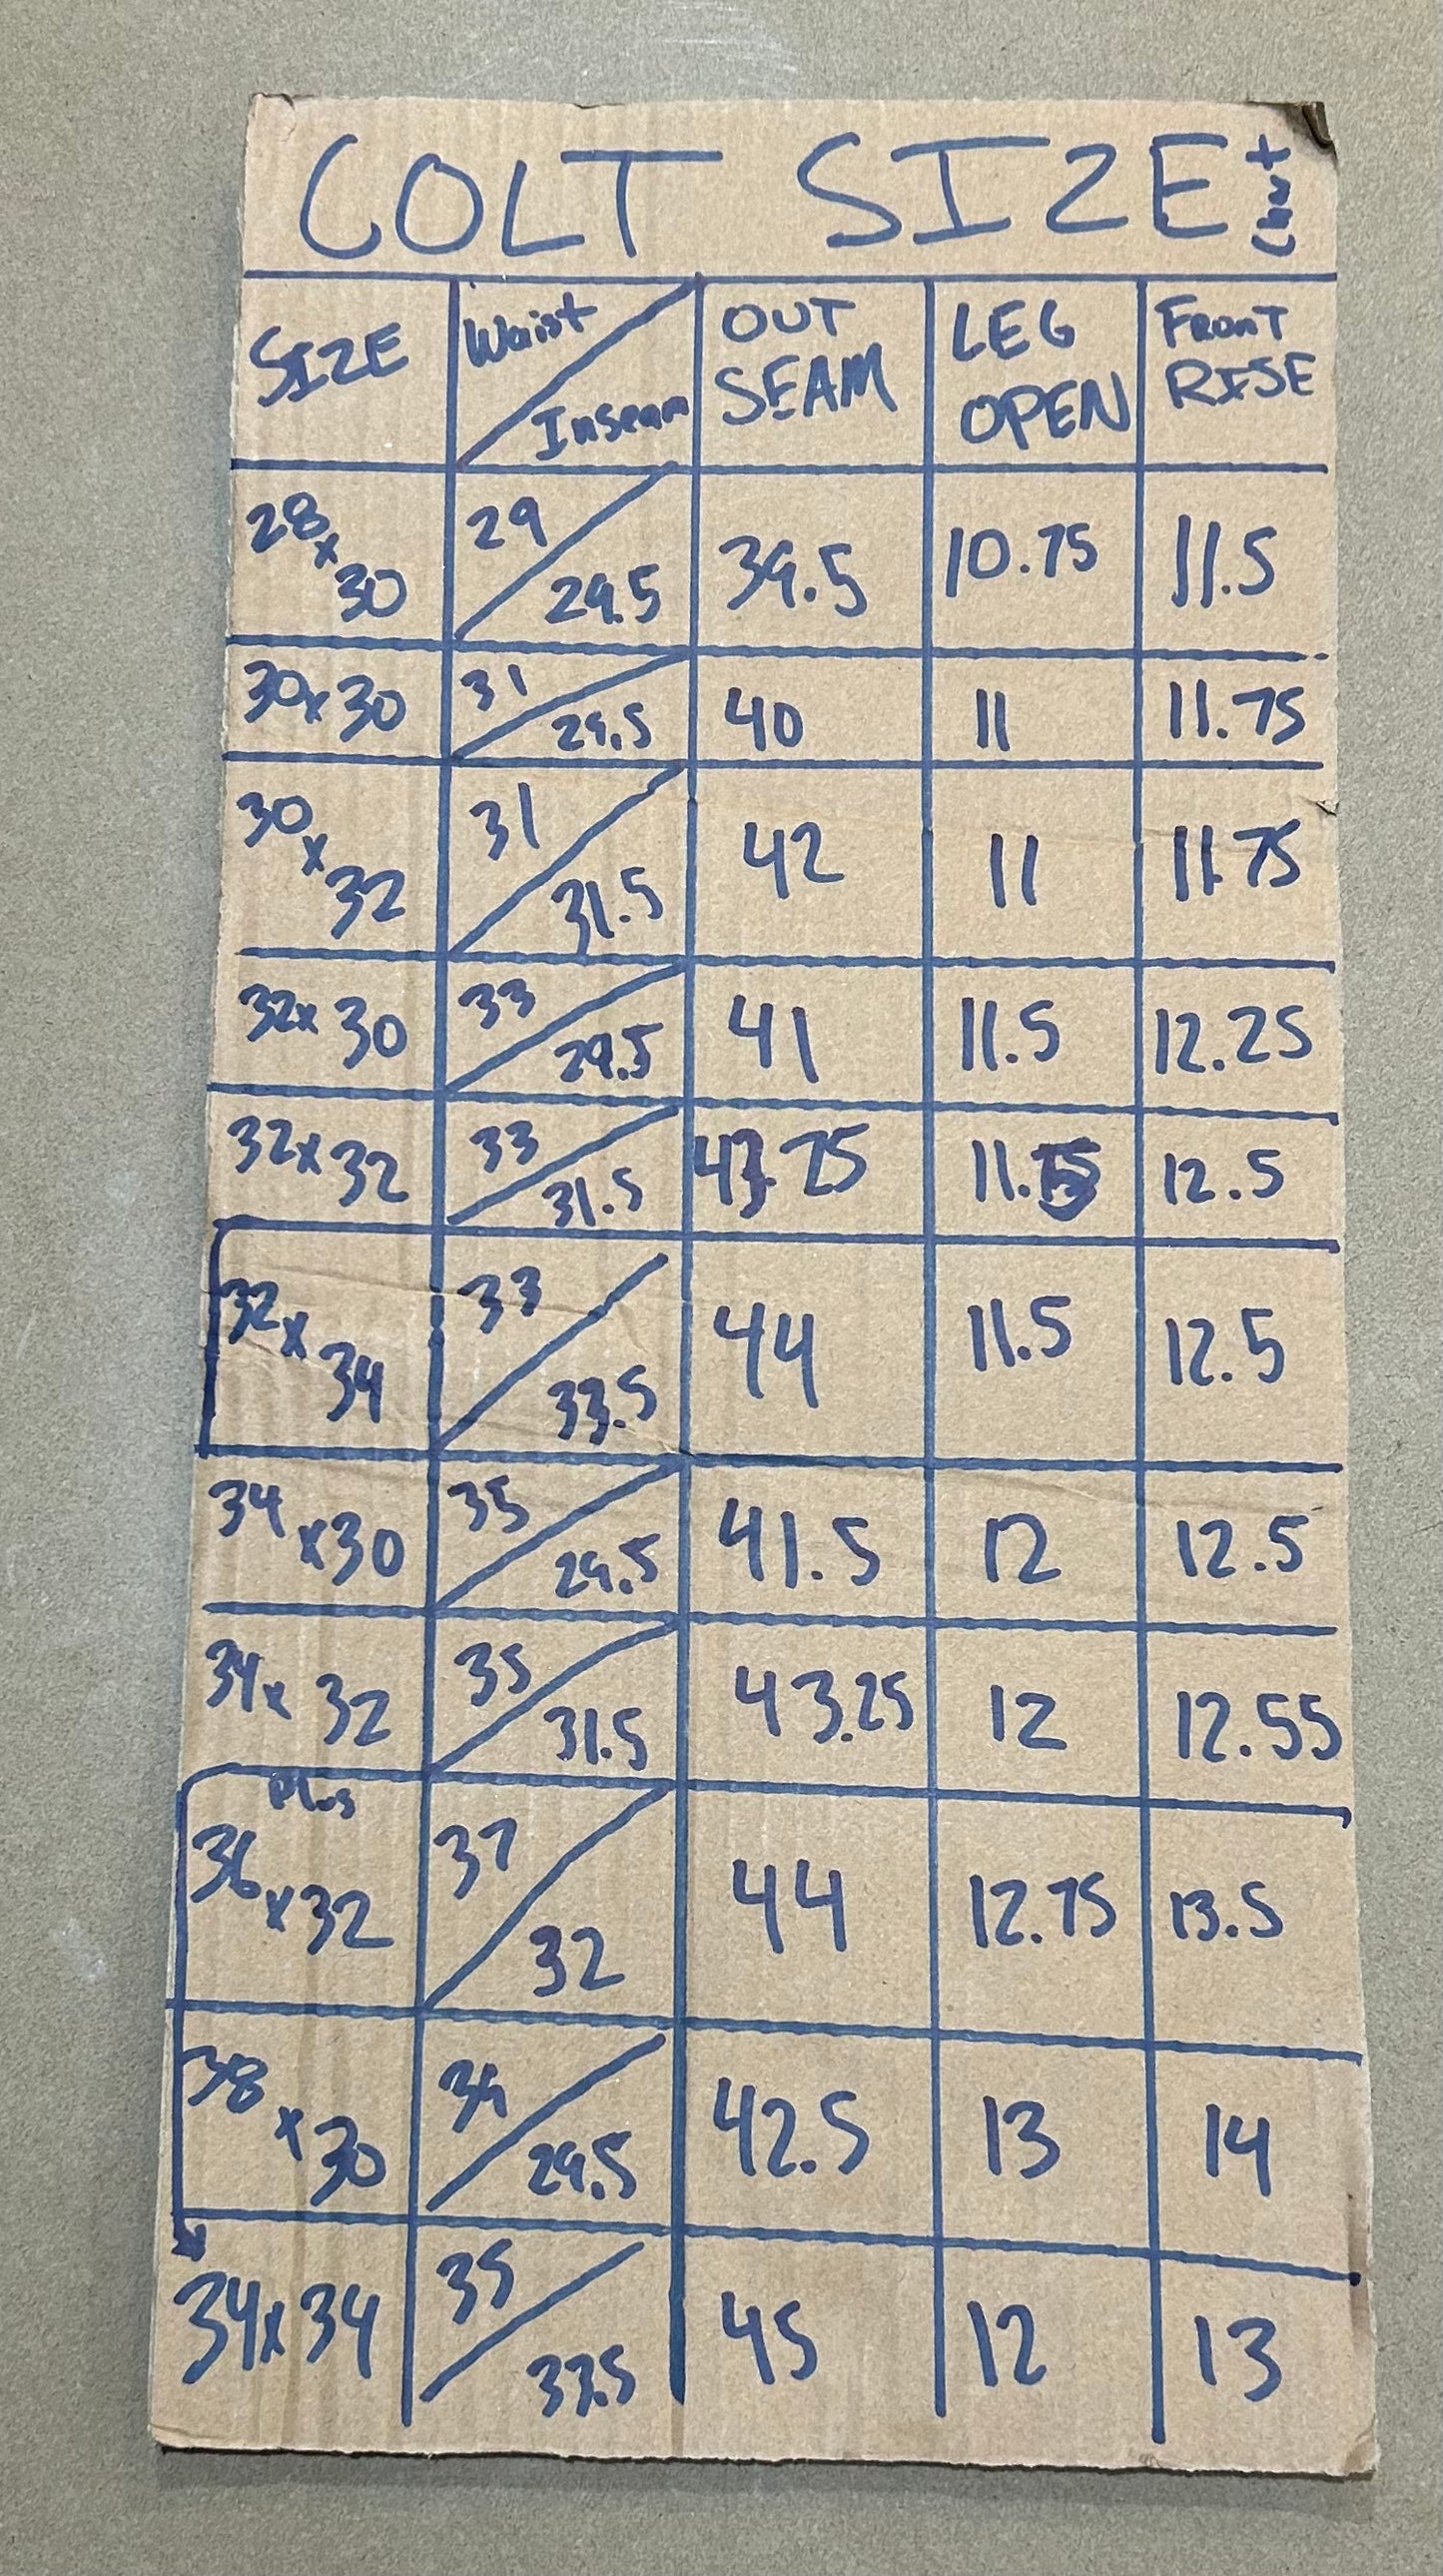 COLT SIZE Chart
SIZE Waist / Inseam OUT SEAM LEG OPEN FRONT RISE
28x30 29 / 29.5 39.5 10.75 11.5
30x30 31 / 29.5 40 11 11.75
30x32 31 / 31.5 42 11 11.75
32x30 33 / 29.5 41 11.5 12.25
32x32 33 / 31.5 43.25 12.5
32x34 33 / 33.5 44 11.5 12.5
34x30 35 / 29.5 41.5 12 12.5
34x32 35 / 31.5 43.25 12 12.55
Plus
36x32 37 / 32 44 12.75 13.5
38x30 39 / 29.5 42.5 13 14
34x34 35 / 33.5 45 12 13